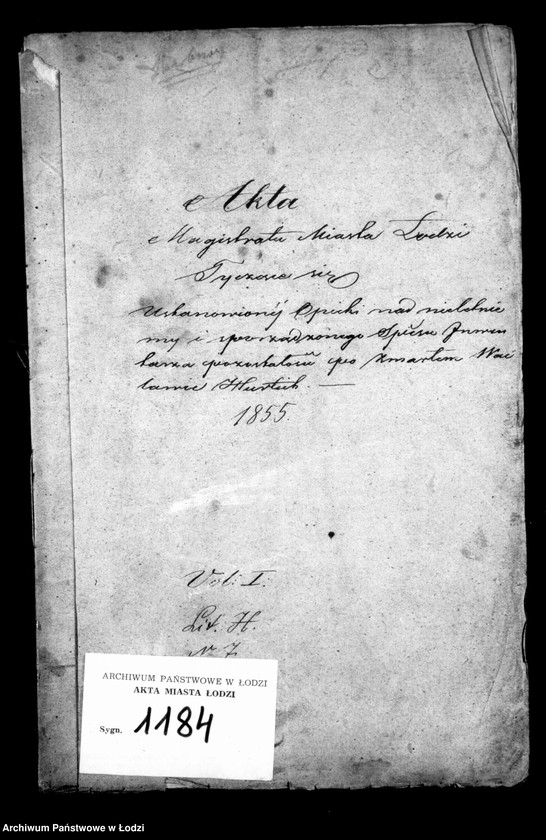 Akta
Magistratu Miasta Łodzi
Tyczące się
Ustanowionéj Opieki nad nieletnie
my i sporządzonego Spisu Inwen
tarza pozostałości po zmarłem Wac
ławie Hurtich. —
1855.
Vol: I.
Lit. H.
N 7
ARCHIWUM PAŃSTWOWE W ŁODZI
AKTA MIASTA ŁODZI
Sygn. 1184
Archiwum Państwowe w Łodzi
Archiwum Państwowe w Łodzi